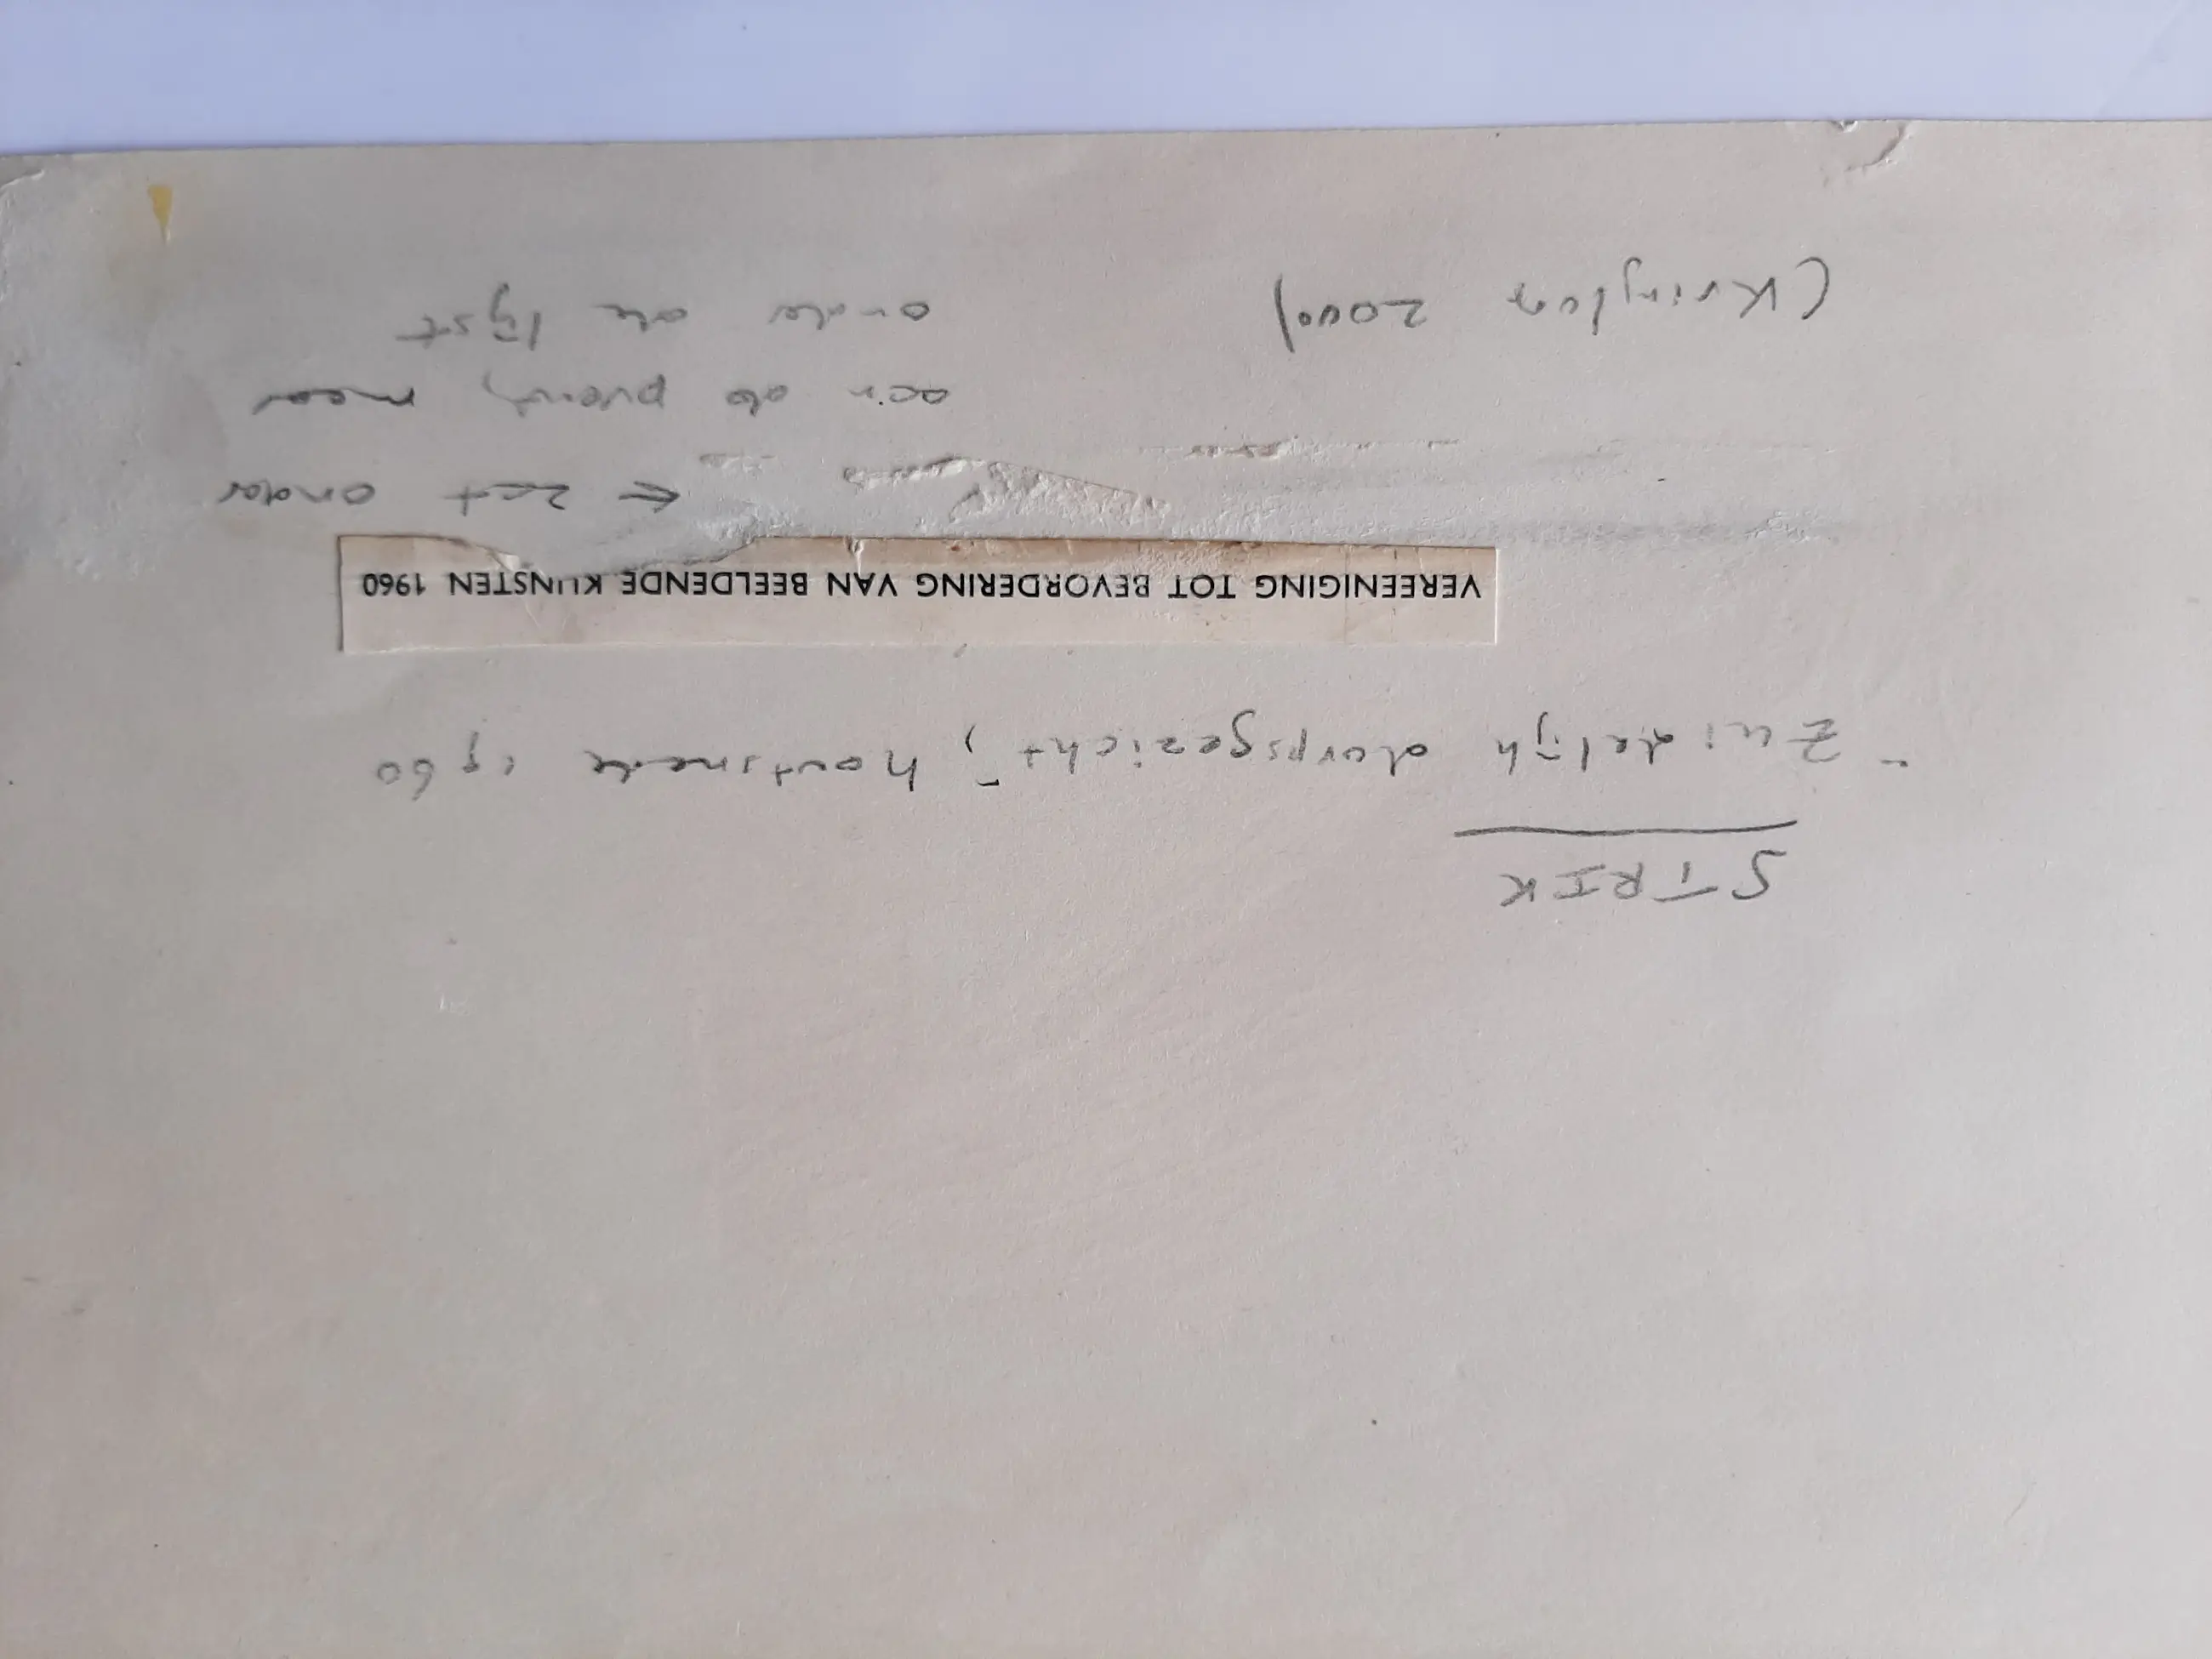 STRIK
"Zuidelijk dorpsgezicht", houtsnede 1960
VEREENIGING TOT BEVORDERING VAN BEELDENDE KUNSTEN 1960
← zat onder
aan de prent, maar
onder de lijst
(Kringloop 2000)